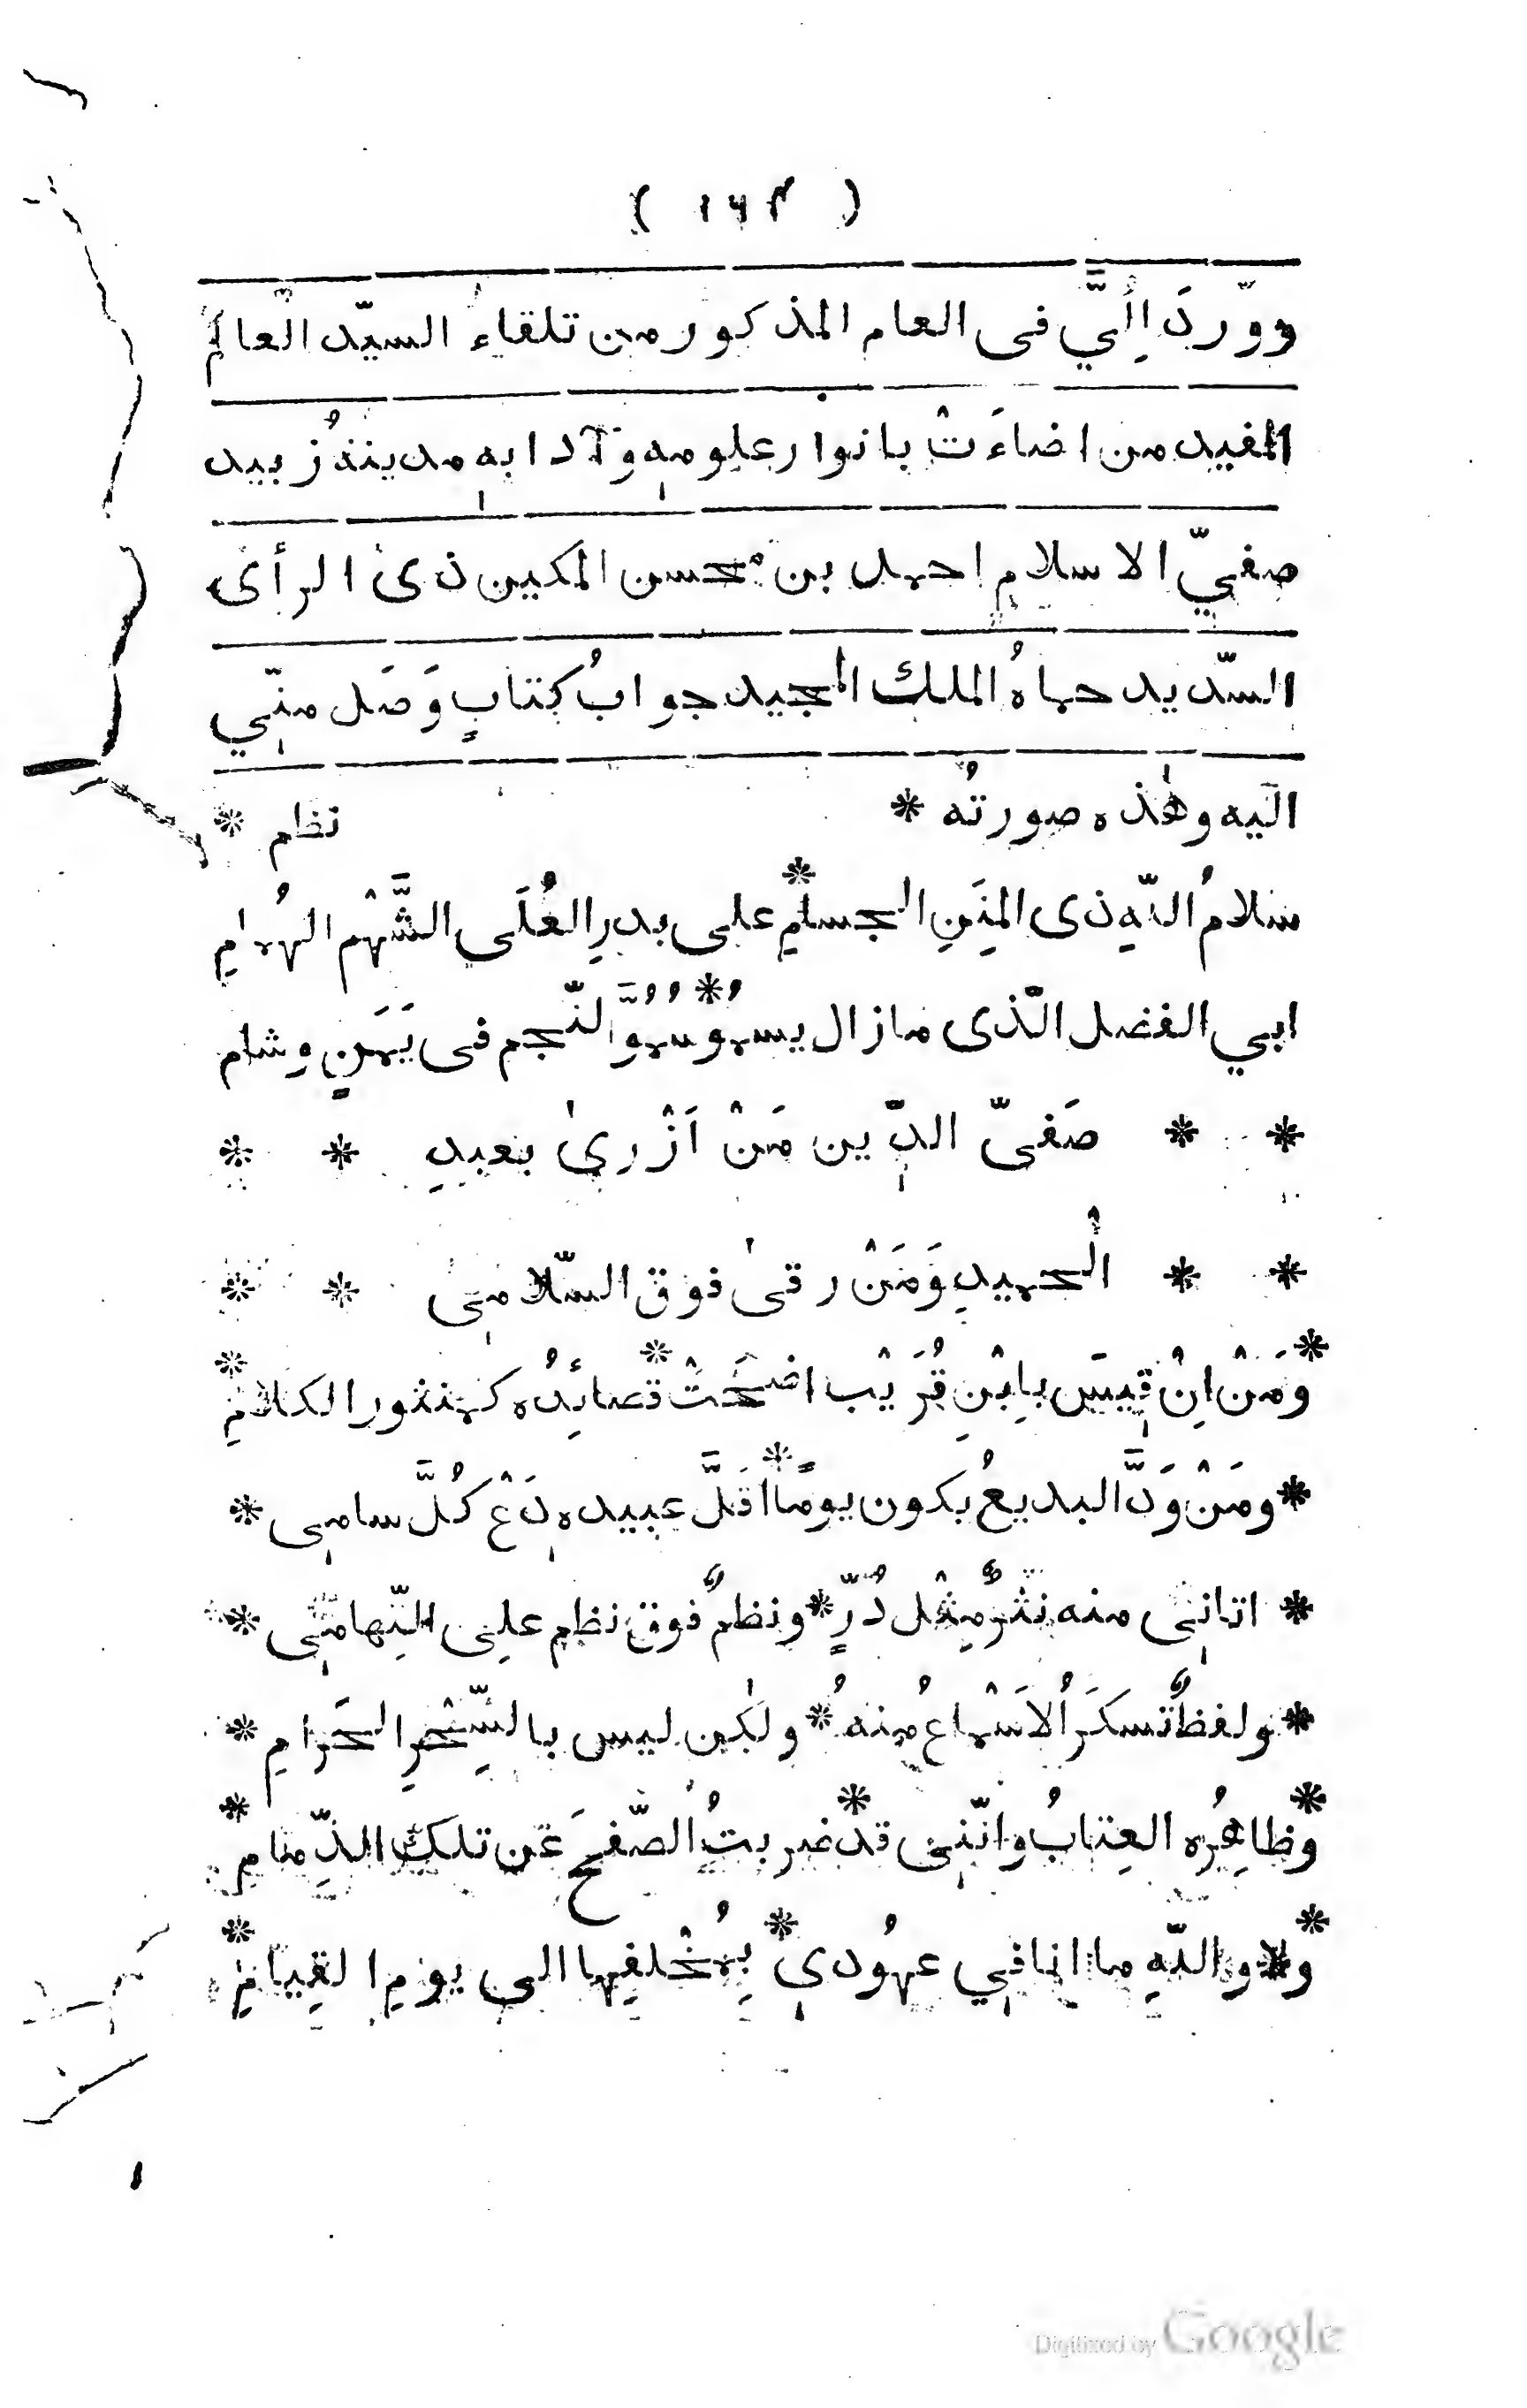 ( ۱۶۴ )
ووّردَ اِليَّ فى العام المذكور من تلقاء السيّد العالم
المفيد من اضاءَتْ بانوار علومهٖ وآدابهٖ مدينةُ زبيد
صفيّ الاسلامِ احمد بن محسن المكين ذى الرأى
السّديد حماهُ الملك المجيد جوابُ كتابٍ وَصَل منّي
اليه وهٰذه صورتُه * نظم *
سَلامُ اللّهِ ذى المِنَنِ الجسامِ * على بدرِ العُلَى الشَّهْمِ الهُمامِ
ابي الفضل الّذى مازال يسموُ * سموَّ النّجم فى يَمَنٍ وشام
* * صَفىّ الدّين مَنْ اَزْرىٰ بعبدِ * *
* * الْحميدِ وَمَنْ رقىٰ فوق السّلامى * *
* ومَنْ اِنْ قِيسَ بِابْنِ قُرَيْب اضحَتْ * قصائِدُه كمنثور الكلامِ *
* ومَنْ وَدَّ البديعُ يكون يومًا * اَقَلَّ عبيده دَعْ كُلَّ سامى *
* اتانى منه نثرٌ مِثْل دُرٍّ * ونظمٌ فوق نظم علِى التِّهامى *
* ولفظٌ تسكَرَ اُلاَسْماعُ مِنه * ولٰكن ليس بالسِّحْرِ الحَرامِ *
* وظاهِرُه العِتابُ وانّنى قد * ضربتُ الصّفحَ عَن تلك الذِّمامِ *
* ولا واللّهِ ما انا في عهُودي * بِمُخْلفِها الى يومِ القِيامِ *
Digitized by Google